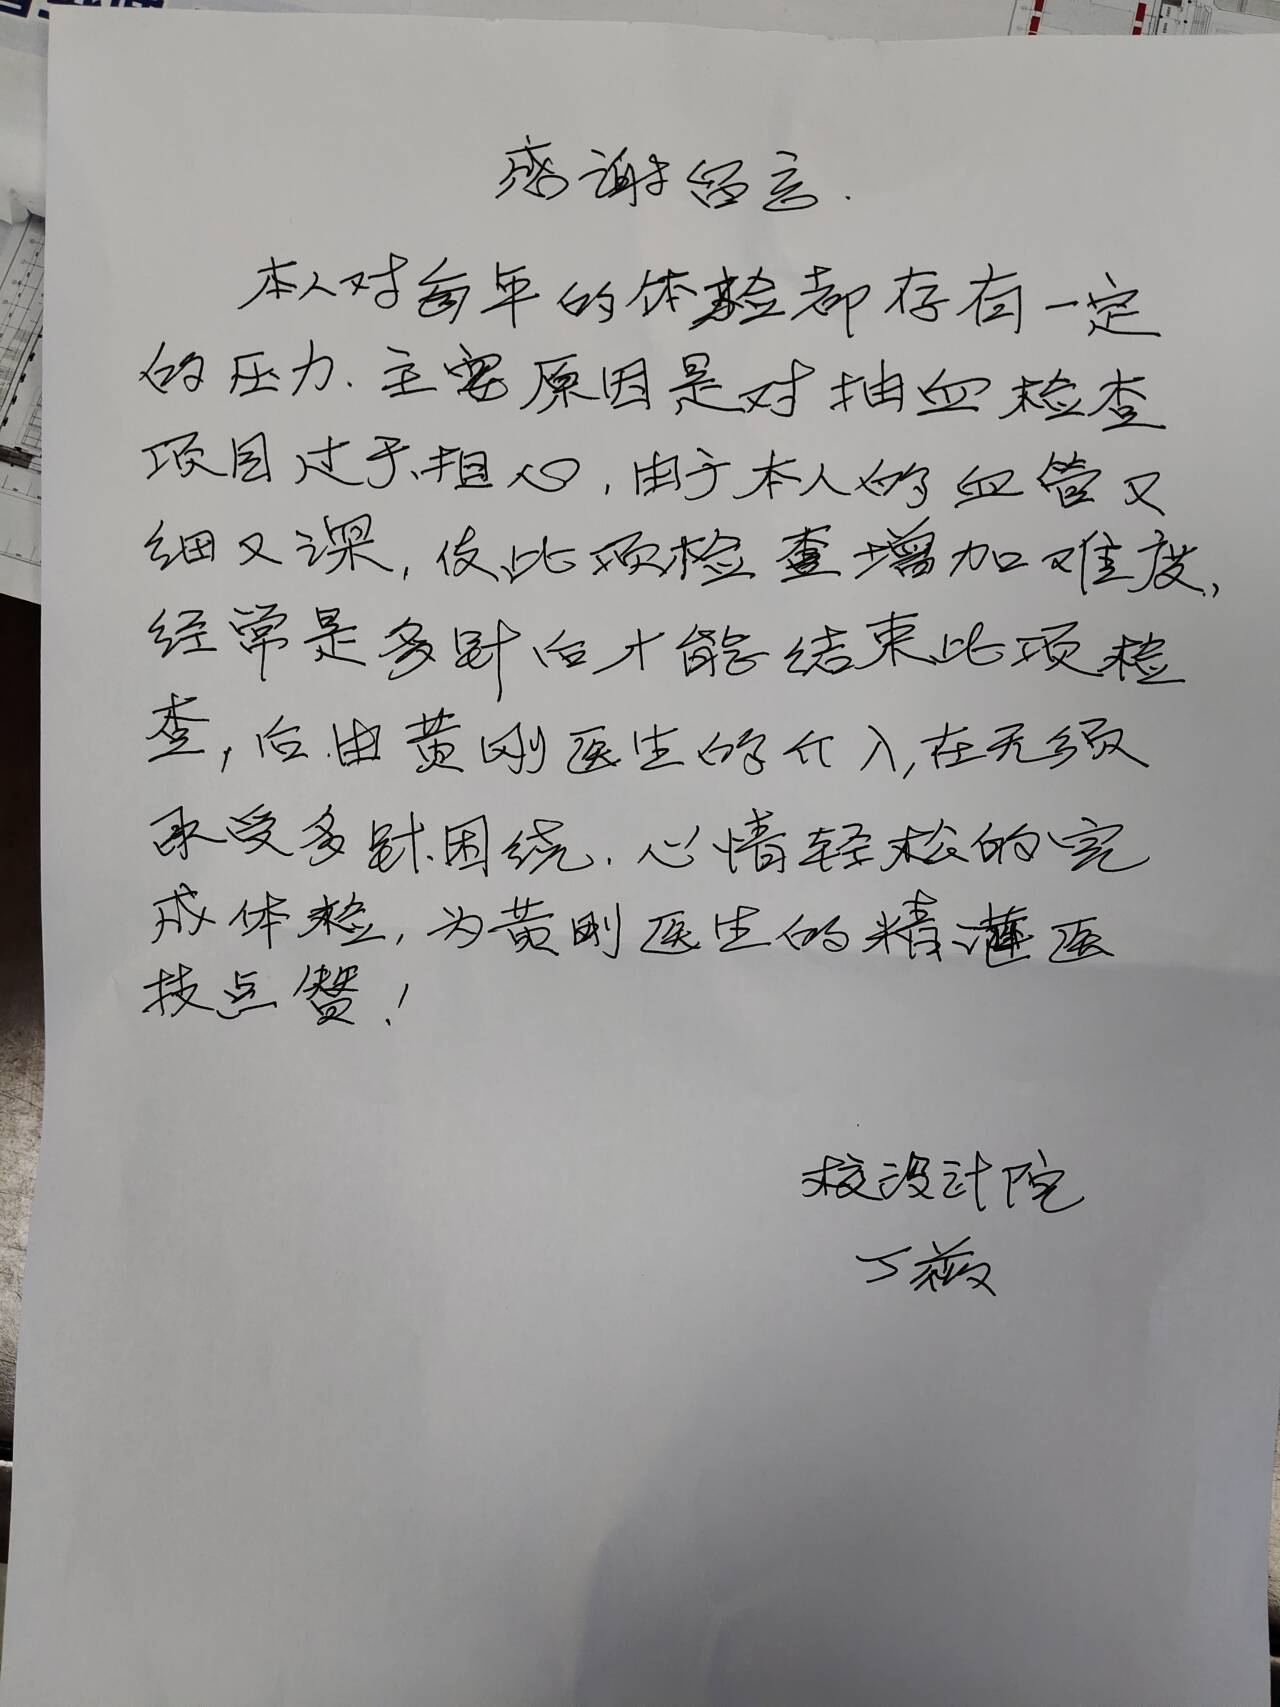 感谢留言.
本人对每年的体检都存在一定
的压力.主要原因是对抽血检查
项目过于担心,由于本人的血管又
细又深,使此项检查增加难度,
经常是多针后才能结束此项检
查,后由黄刚医生的介入,在无须
承受多针困绕.心情轻松的完
成体检,为黄刚医生的精湛医
技点赞!
校设计院
丁薇